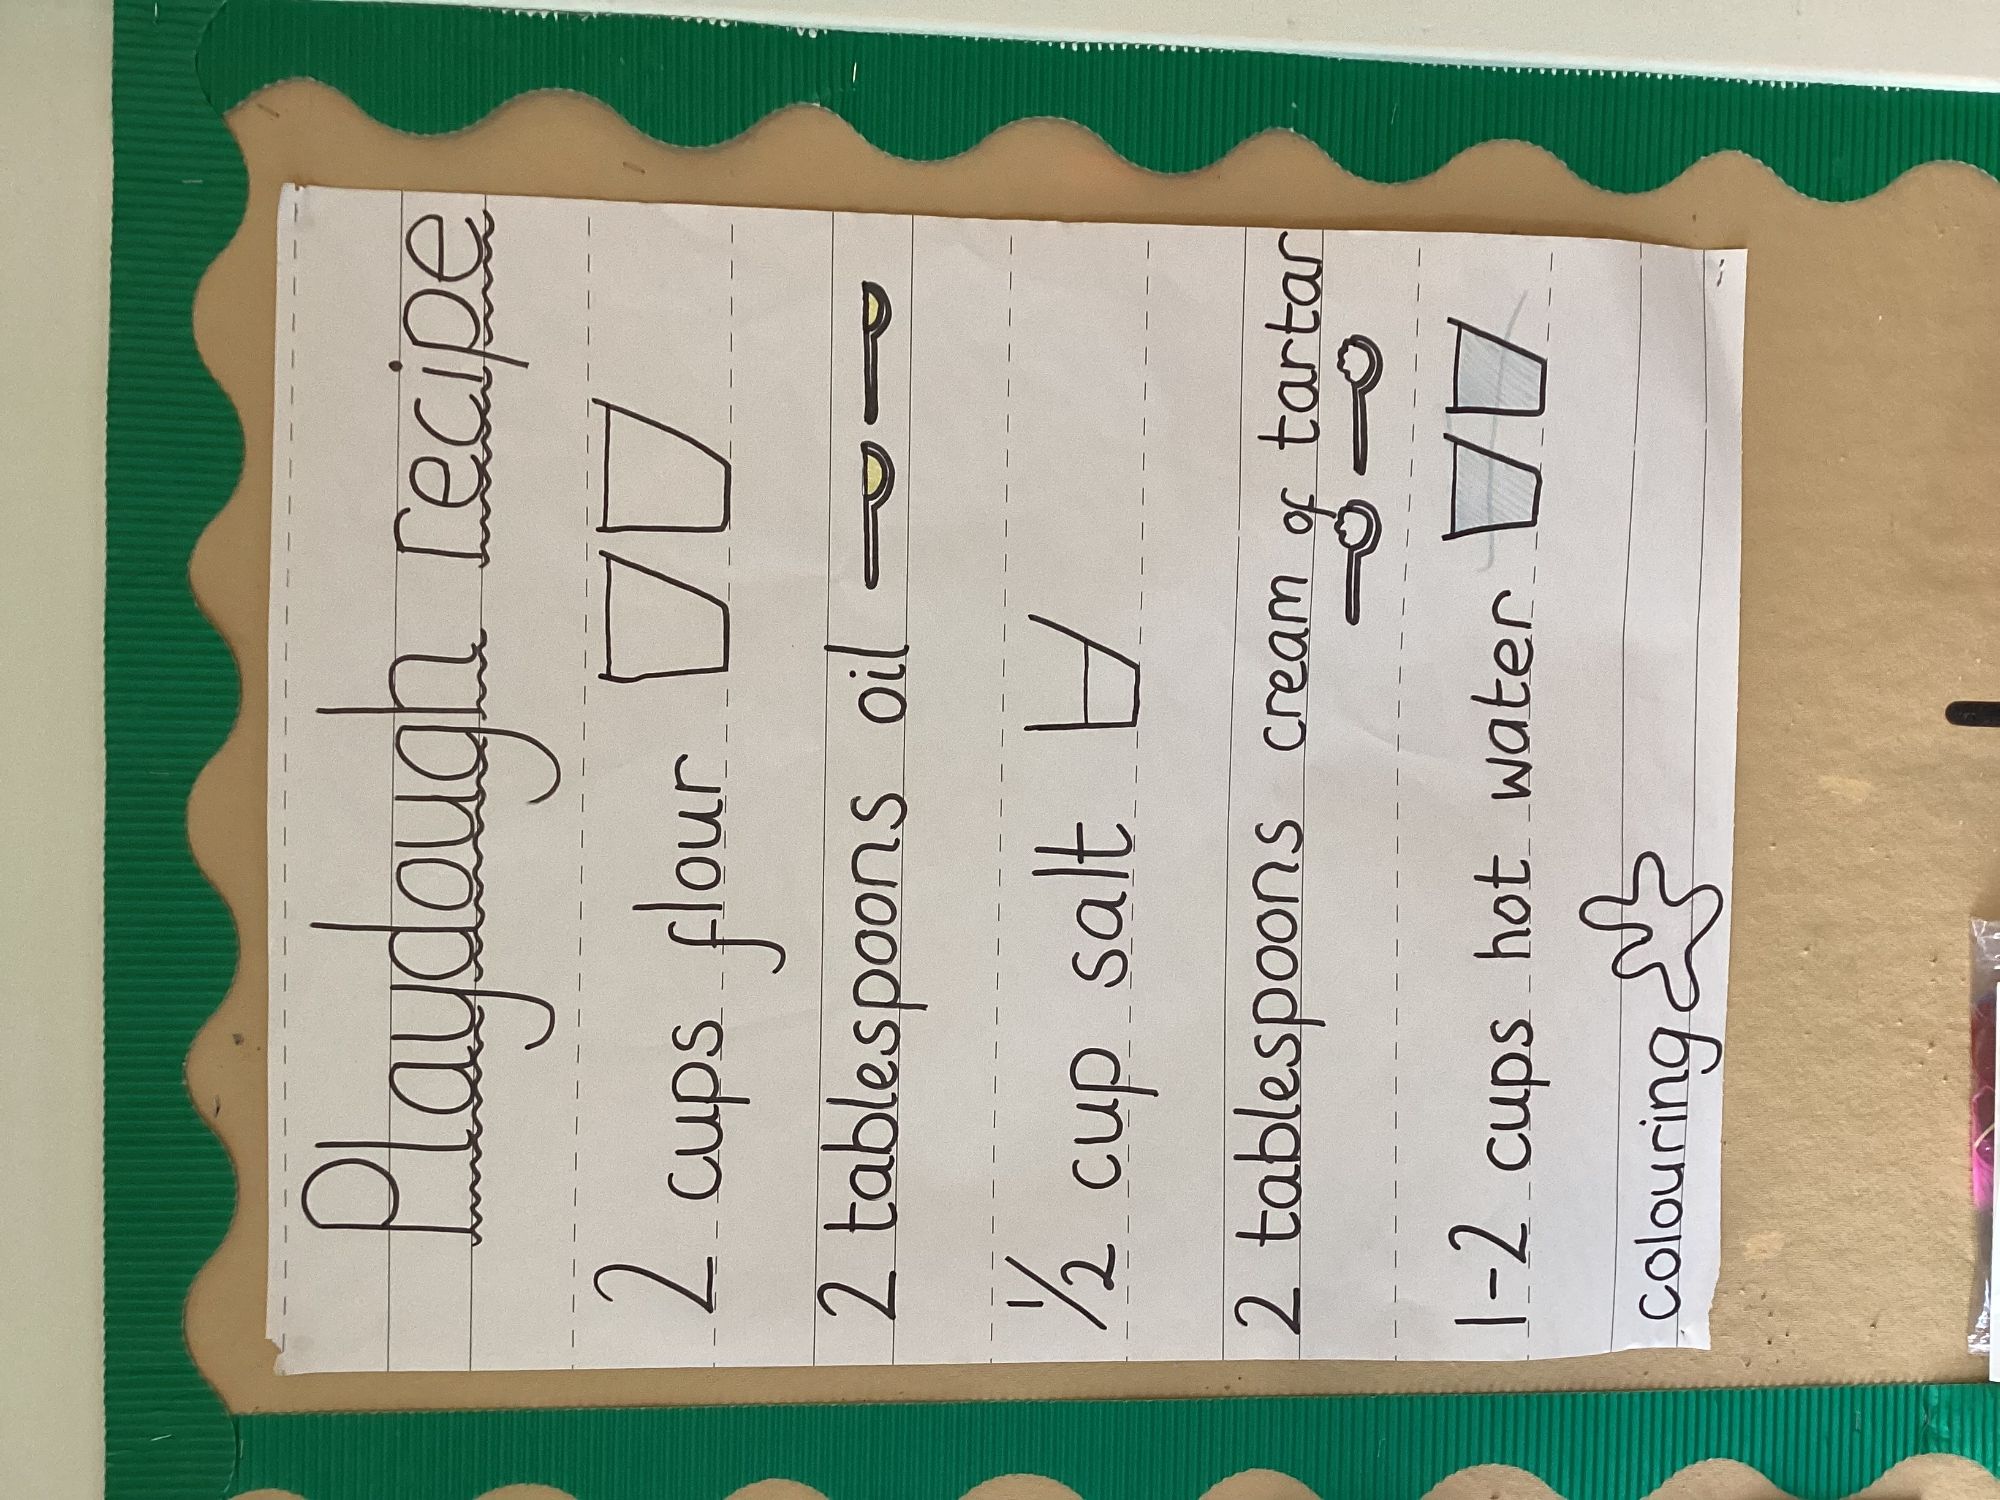 Playdough recipe
2 cups flour
2 tablespoons oil
1/2 cup salt
2 tablespoons cream of tartar
1-2 cups hot water
colouring